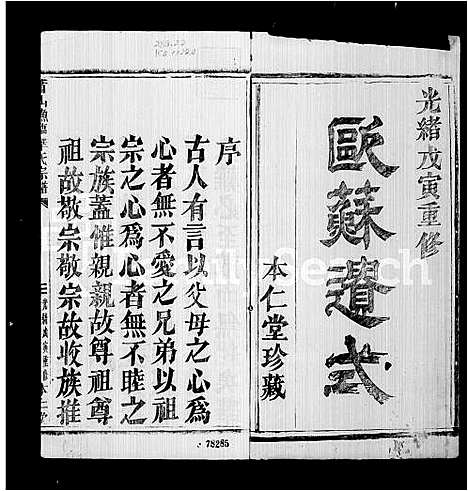 光緒戊寅重修
歐蘇遺式
本仁堂珍藏
序
古人有言以父母之心爲
心者無不愛之兄弟以祖
宗之心爲心者無不睦之
宗族蓋惟親親故尊祖尊
祖故敬宗敬宗故收族推
氏宗譜
光緒戊寅重修
FamilySearch
78265